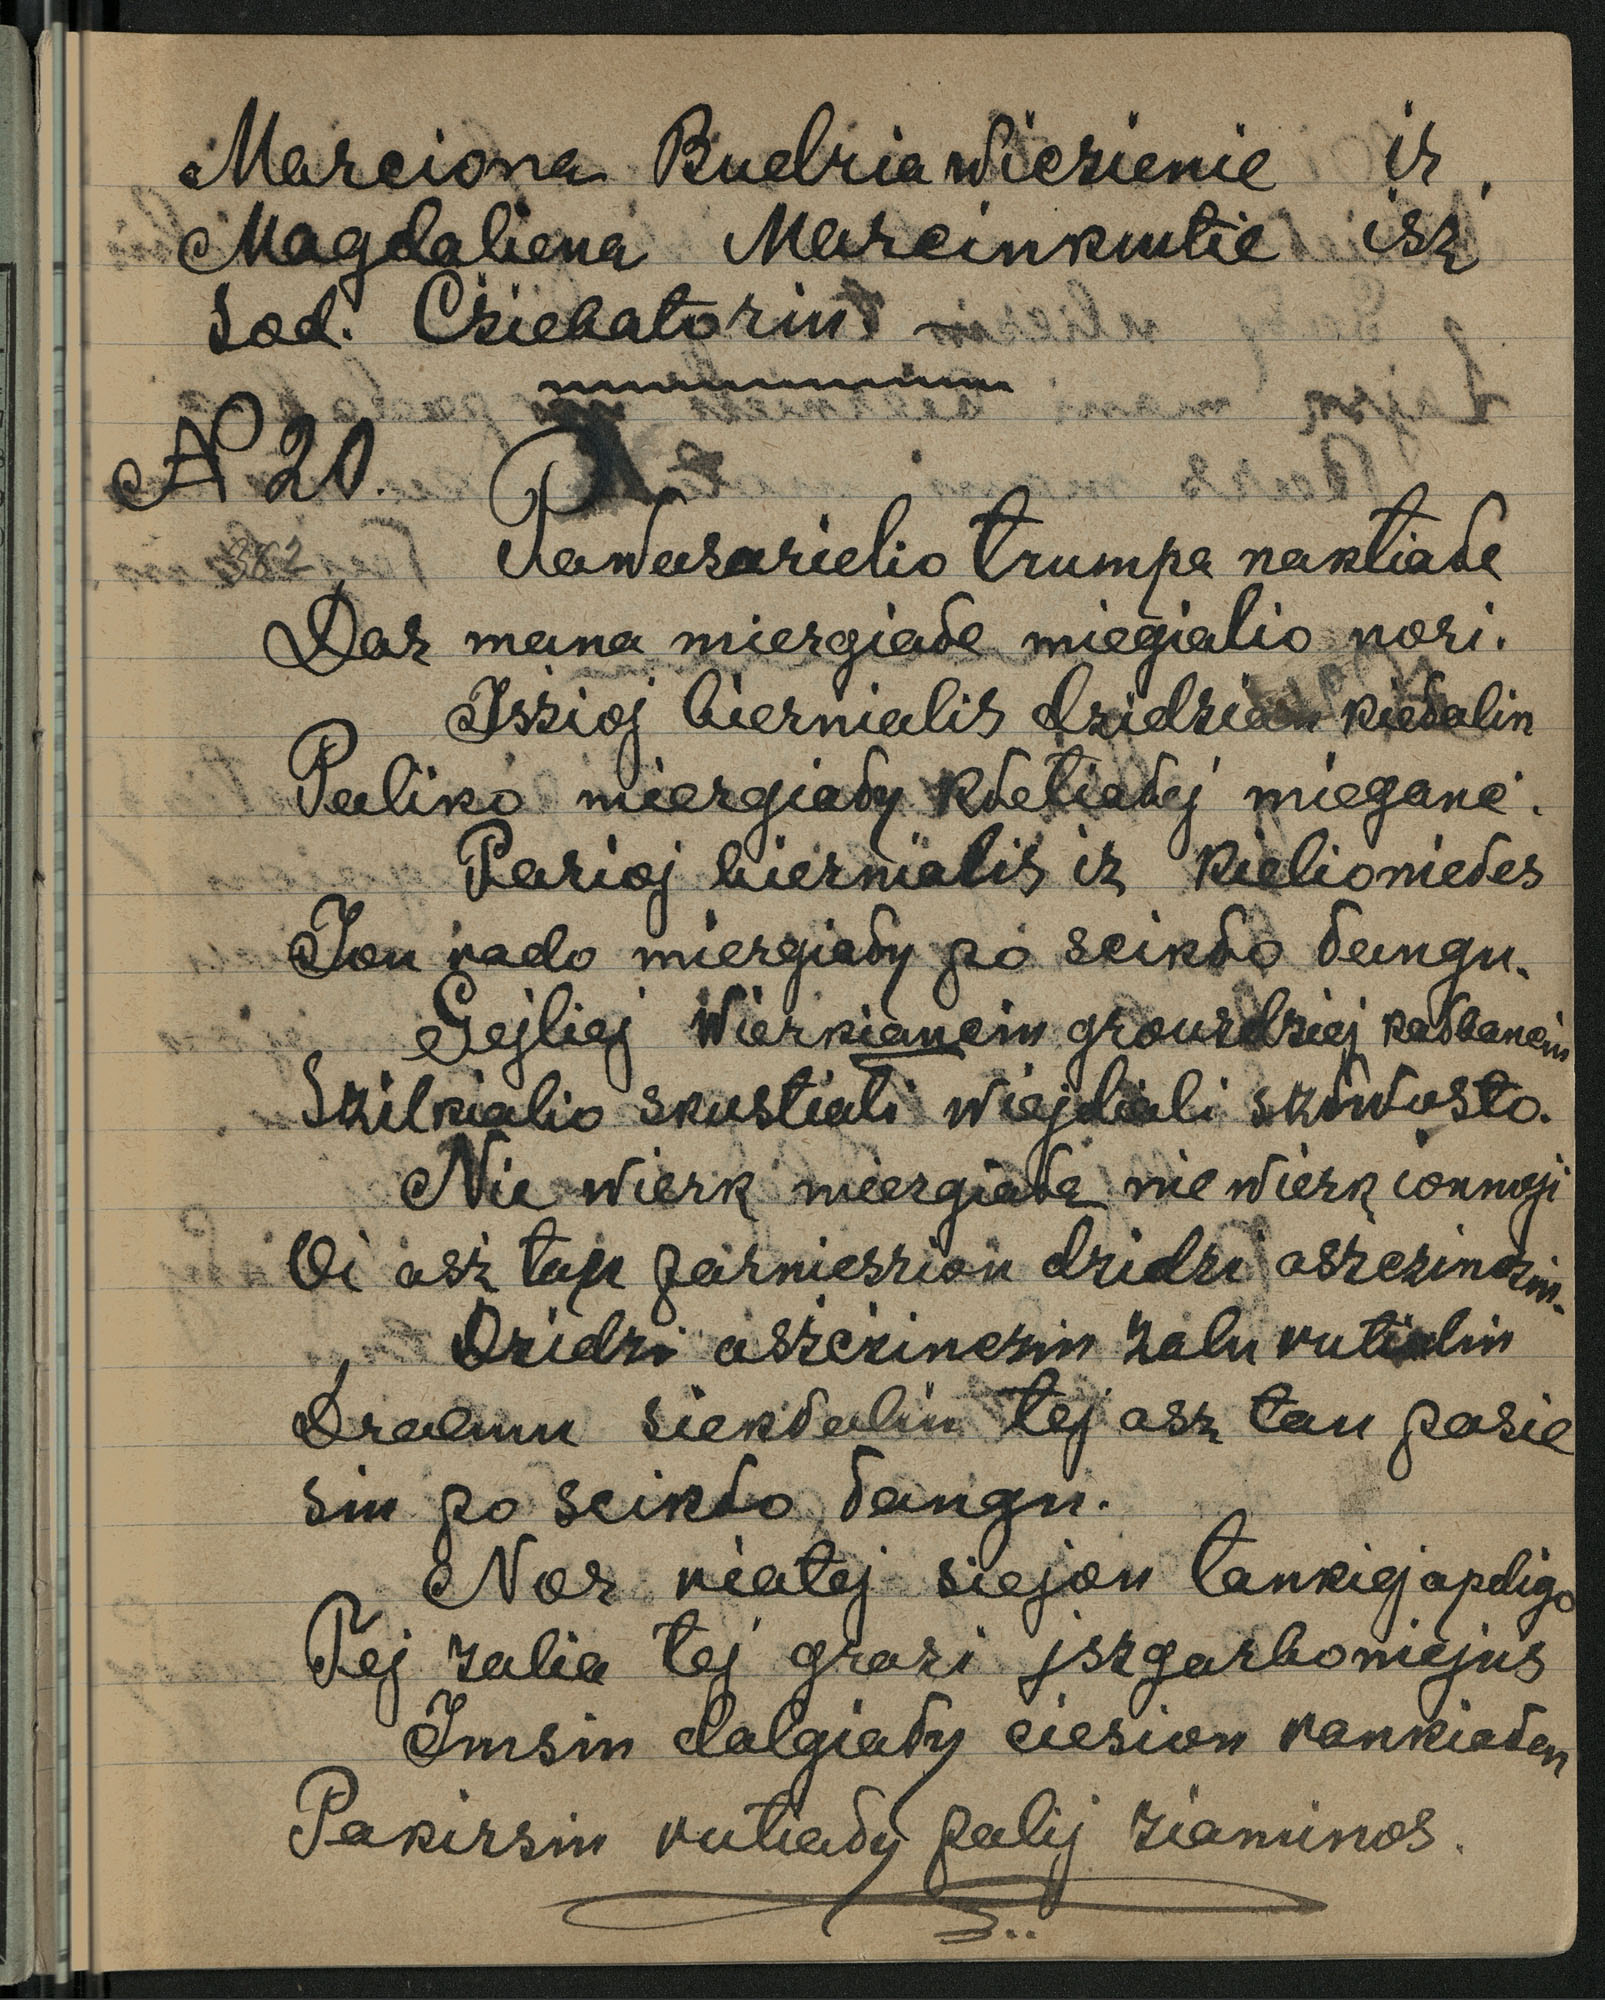 Marciona Budriawiczienie ir
Magdaliena Marcinkiutie isz
Sod. Cziebatoriu
№ 20.
Pawasarielio trumpa naktiałe
382
Dar mana miergiałe miegialio nori.
Iszioj biernialis dzidzian kiełalin
Paliko miergiały kłetiałej mieganė.
Parioj biernialis iz kielioniełes
Jou rado miergiały po scikło łangu.
Gejliej wierkiancin grouzdziej kałbancin
Szilkialio skustiali wiejdiali szłwosto.
Nie wierk miergiałe nie wierk iounoji
Oi asz taju parniesziou dzidzi aszczinczin.
Dzidzi aszczinczin zalu rutialin
Draemu siekłalin tej asz tau pasie
siu po scikło łangu.
Nor rietej siejou tankiej apdigo
Tej zalia tej grazi iszgarboniejus
Imsiu dalgiały ciesion rankiałen
Pakirsiu rutiały palij ziaminos.